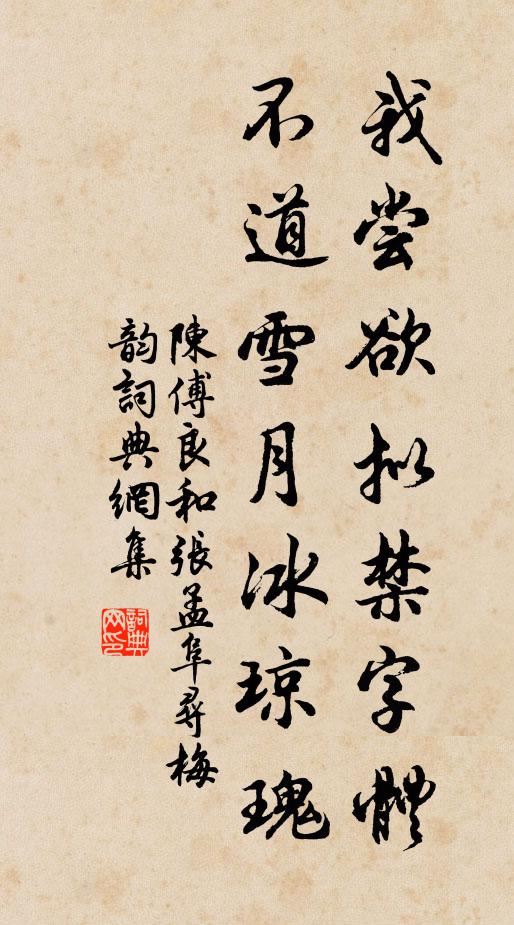 我尝欲拟禁字體
不道雪月冰琼瑰
陳傅良和張孟阜尋梅
韵詞典網集
詞典
网印